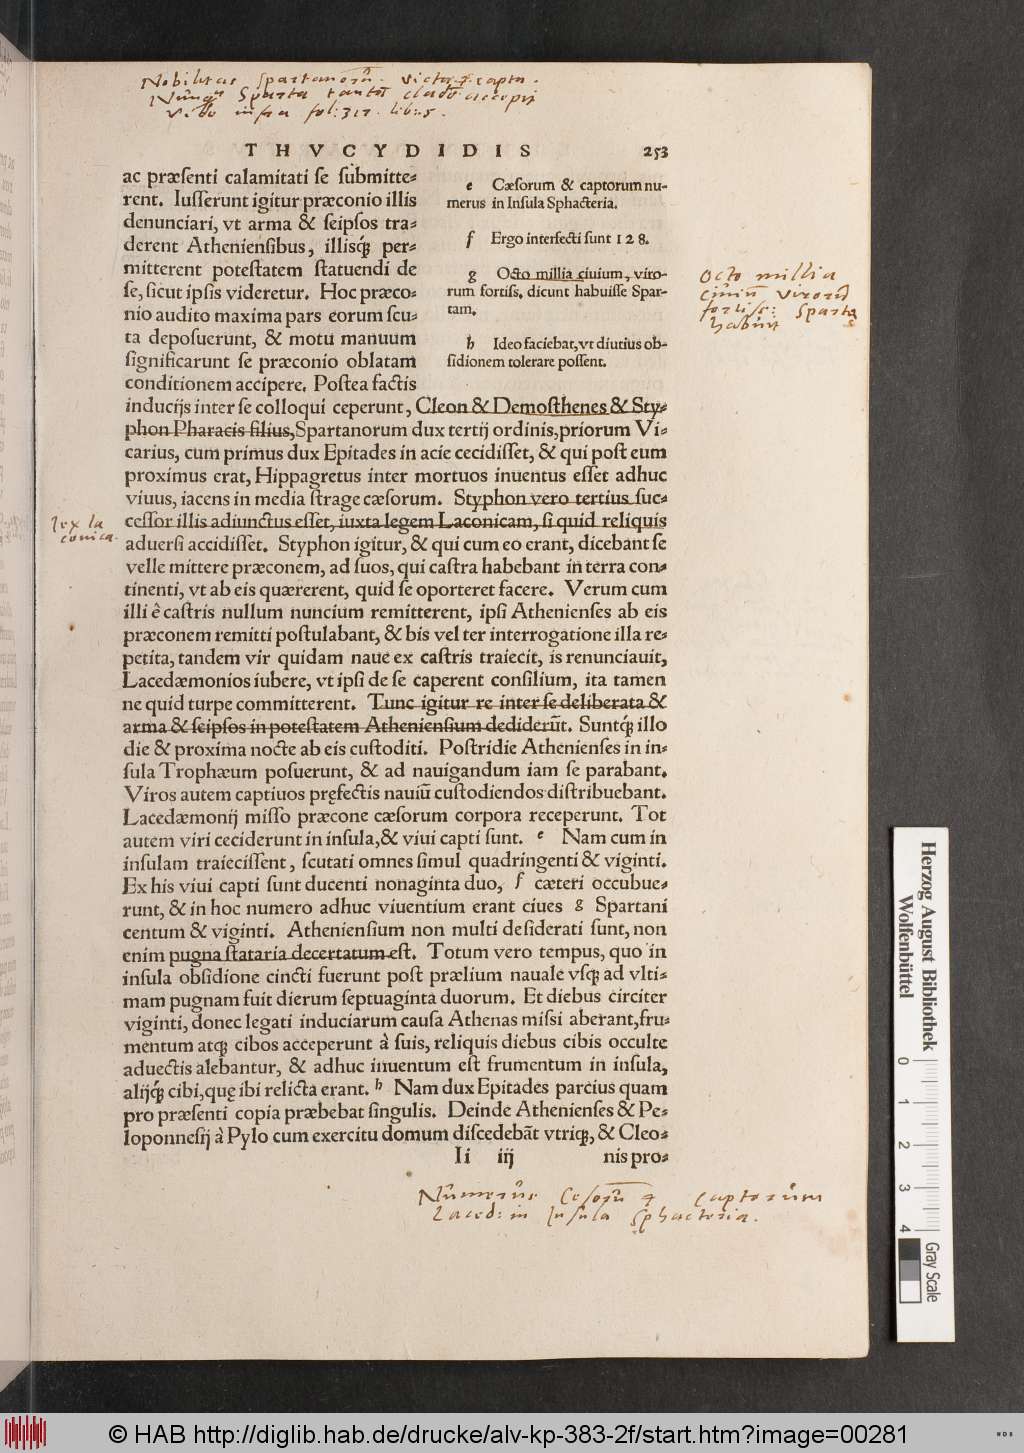 Nobilitas Spartanorū. victa & capta.
Nunqͥ Sparta tantā cladē accepit
Vide infra fol: 317. lib: 5.
THVCYDIDIS 253
ac præſenti calamitati ſe ſubmitte⸗
rent. Iuſſerunt igitur præconio illis
denunciari, vt arma & ſeipſos tra⸗
derent Athenienſibus, illiſq́; per⸗
mitterent poteſtatem ſtatuendi de
ſe, ſicut ipſis videretur. Hoc præco⸗
nio audito maxima pars eorum ſcu⸗
ta depoſuerunt, & motu manuum
ſignificarunt ſe præconio oblatam
conditionem accipere. Poſtea factis
e Cæſorum & captorum nu-
merus in Inſula Sphacteria.
f Ergo interfecti ſunt 128.
g Octo millia ciuium, viro-
rum fortiſs. dicunt habuiſſe Spar-
tam.
h Ideo faciebat, vt diutius ob-
ſidionem tolerare poſſent.
Octo millia
ciuiū virorū
fortiss: Sparta
habuit
inducijs inter ſe colloqui ceperunt, Cleon & Demoſthenes & Sty⸗
phon Pharacis filius, Spartanorum dux tertij ordinis, priorum Vi⸗
carius, cum primus dux Epitades in acie cecidiſſet, & qui poſt eum
proximus erat, Hippagretus inter mortuos inuentus eſſet adhuc
viuus, iacens in media ſtrage cæſorum. Styphon vero tertius ſuc⸗
ceſſor illis adiunctus eſſet, iuxta legem Laconicam, ſi quid reliquis
lex la
conica.
aduerſi accidiſſet. Styphon igitur, & qui cum eo erant, dicebant ſe
velle mittere præconem, ad ſuos, qui caſtra habebant in terra con⸗
tinenti, vt ab eis quærerent, quid ſe oporteret facere. Verum cum
illi ê caſtris nullum nuncium remitterent, ipſi Athenienſes ab eis
præconem remitti poſtulabant, & bis vel ter interrogatione illa re⸗
petita, tandem vir quidam naue ex caſtris traiecit, is renunciauit,
Lacedæmonios iubere, vt ipſi de ſe caperent conſilium, ita tamen
ne quid turpe committerent. Tunc igitur re inter ſe deliberata &
arma & ſeipſos in poteſtatem Athenienſium dediderūt. Suntq́; illo
die & proxima nocte ab eis cuſtoditi. Poſtridie Athenienſes in in⸗
ſula Trophæum poſuerunt, & ad nauigandum iam ſe parabant.
Viros autem captiuos pręfectis nauiū cuſtodiendos diſtribuebant.
Lacedæmonij miſſo præcone cæſorum corpora receperunt. Tot
autem viri ceciderunt in inſula, & viui capti ſunt. e Nam cum in
inſulam traieciſſent, ſcutati omnes ſimul quadringenti & viginti.
Ex his viui capti ſunt ducenti nonaginta duo, f cæteri occubue⸗
runt, & in hoc numero adhuc viuentium erant ciues g Spartani
centum & viginti. Athenienſium non multi deſiderati ſunt, non
enim pugna ſtataria decertatum eſt. Totum vero tempus, quo in
inſula obſidione cincti fuerunt poſt prælium nauale vſq; ad vlti⸗
mam pugnam fuit dierum ſeptuaginta duorum. Et diebus circiter
viginti, donec legati induciarum cauſa Athenas miſsi aberant, fru⸗
mentum atq; cibos acceperunt à ſuis, reliquis diebus cibis occulte
aduectis alebantur, & adhuc inuentum eſt frumentum in inſula,
alijq́; cibi, quę ibi relicta erant. h Nam dux Epitades parcius quam
pro præſenti copia præbebat ſingulis. Deinde Athenienſes & Pe⸗
loponneſij à Pylo cum exercitu domum diſcedebāt vtriq;, & Cleo⸗
Ii iij nis pro⸗
Numerus Cesorū & captorum
Laced: in Insula Sphacteria.
Herzog August Bibliothek
Wolfenbüttel
0 1 2 3 4
Gray Scale
© HAB http://diglib.hab.de/drucke/alv-kp-383-2f/start.htm?image=00281